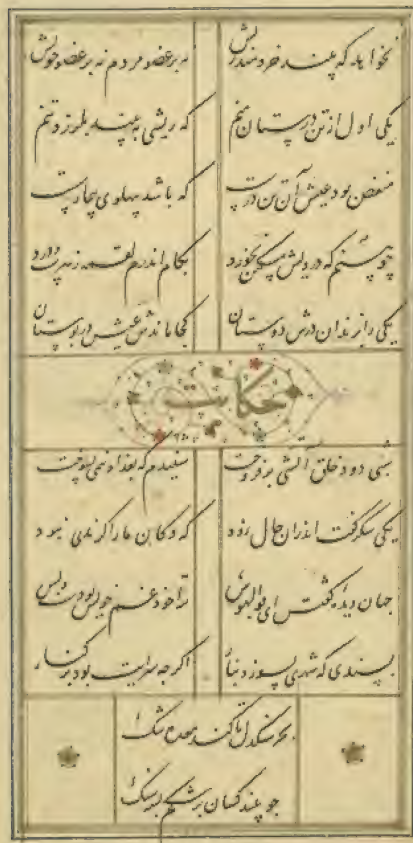 نخواهد که بیند خردمند ریش نه بر عضو مردم نه بر عضو خویش
یکی اول از تن درستان منم که ریشی به بیند بلرزد تنم
منغص بود عیش آن تن درست که باشد پهلوی بیمار سست
چو بینم که درویش مسکین نخورد بکام اندرم لقمه زهرست و درد
یکی را بزندان درش دوستان کجا ماندش عیش در بوستان
حکایت
شبی دود خلق آتشی برفروخت شنیدم که بغداد نیمی بسوخت
یکی شکر گفت اندران حال زود که دکان ما را گزندی نبود
جهان دیده گفتش ای بوالهوس ترا خود غم خویش بودست و بس
پسندی که شهری بسوزد بنار اگرچه سرایت بود بر کنار
بجز سنگدل تا کند معده تنگ
چو بیند کسان بر شکم بسته سنگ